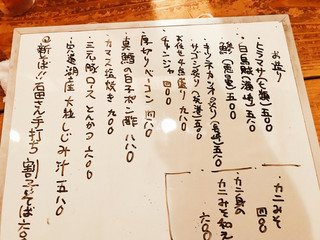 お造り
・ヒラマサ(七類) 五八〇
・白烏賊(浜崎) 五八〇
・鯵(恵曇) 五〇〇
・カニみそ 四〇〇
・カニ身の
カニみそ和え 六〇〇
・お任せ4点盛り 九八〇
・チャンジャ 四〇〇
・厚切りベーコン 四八〇
・真鱈の白子ポン酢 八八〇
・カマス塩焼き 七八〇
・三元豚ロースとんかつ 六八〇
・宍道湖産 大粒しじみ汁 五八〇
@新そば!!石田さん手打ち 割子そば 六〇